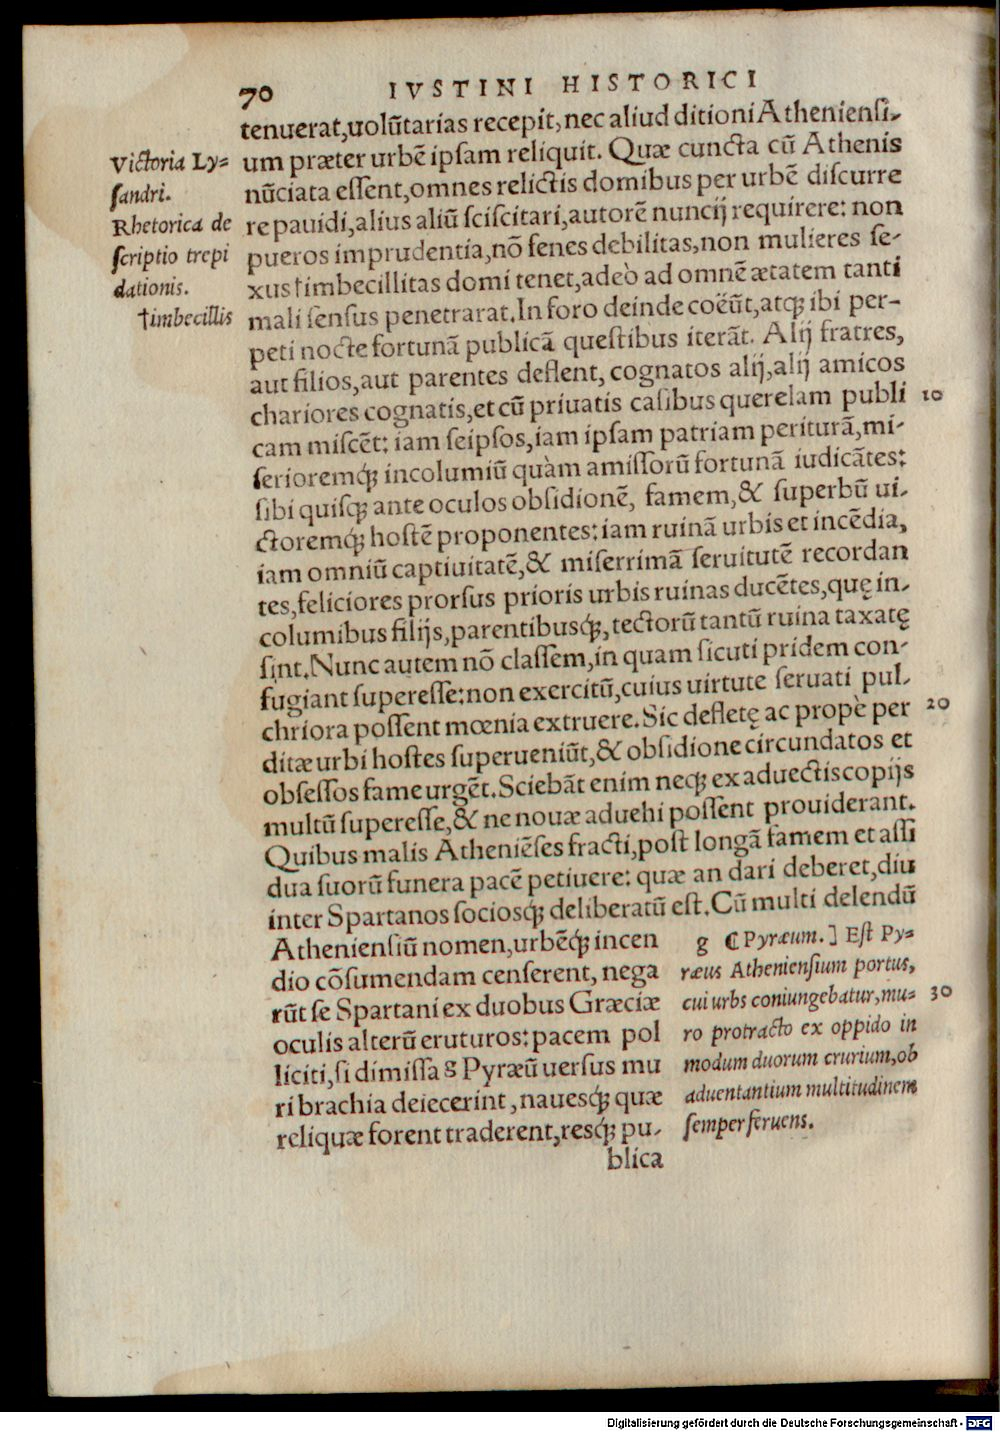 70 IVSTINI HISTORICI
tenuerat,uolūtarias recepit,nec aliud ditioni Atheniensi-
um præter urbē ipsam reliquit. Quæ cuncta cū Athenis
nūciata essent,omnes relictis domibus per urbē discurre
re pauidi,alius aliū sciscitari,autorē nuncij requirere: non
pueros imprudentia,nō senes debilitas,non mulieres se-
xus†imbecillitas domi tenet,adeò ad omnē ætatem tanti
mali sensus penetrarat.In foro deinde coëūt,atq; ibi per-
peti nocte fortunā publicā questibus iterāt. Alij fratres,
aut filios,aut parentes deflent, cognatos alij,alij amicos
chariores cognatis,et cū priuatis casibus querelam publi
cam miscēt: iam seipsos,iam ipsam patriam periturā,mi-
serioremq́; incolumiū quàm amissorū fortunā iudicātes:
sibi quisq; ante oculos obsidionē, famem,& superbū ui-
ctoremq́; hostē proponentes: iam ruinā urbis et incēdia,
iam omniū captiuitatē,& miserrimā seruitutē recordan
tes,feliciores prorsus prioris urbis ruinas ducētes,quę in-
columibus filijs,parentibusq́;,tectorū tantū ruina taxatę
sint.Nunc autem nō classem,in quam sicuti pridem con-
fugiant superesse:non exercitū,cuius uirtute seruati pul-
chriora possent mœnia extruere.Sic defletę ac propè per
ditæ urbi hostes superueniūt,& obsidione circundatos et
obsessos fame urgēt.Sciebāt enim neq; ex aduectis copijs
multū superesse,& ne nouæ aduehi possent prouiderant.
Quibus malis Atheniēses fracti,post longā famem et assi
dua suorū funera pacē petiuere: quæ an dari deberet,diu
inter Spartanos sociosq́; deliberatū est.Cū multi delendū
Atheniensiū nomen,urbēq́; incen
dio cōsumendam censerent, nega
rūt se Spartani ex duobus Græciæ
oculis alterū eruturos: pacem pol
liciti,si dimissa g Pyræū uersus mu
ri brachia deiecerint, nauesq́; quæ
reliquæ forent traderent,resq́; pu-
blica
Victoria Ly=
sandri.
Rhetorica de
scriptio trepi
dationis.
†imbecillis
10
20
30
g ⁋Pyræum.] Est Py=
ræus Atheniensium portus,
cui urbs coniungebatur,mu=
ro protracto ex oppido in
modum duorum crurium,ob
aduentantium multitudinem
semper feruens.
Digitalisierung gefördert durch die Deutsche Forschungsgemeinschaft - DFG